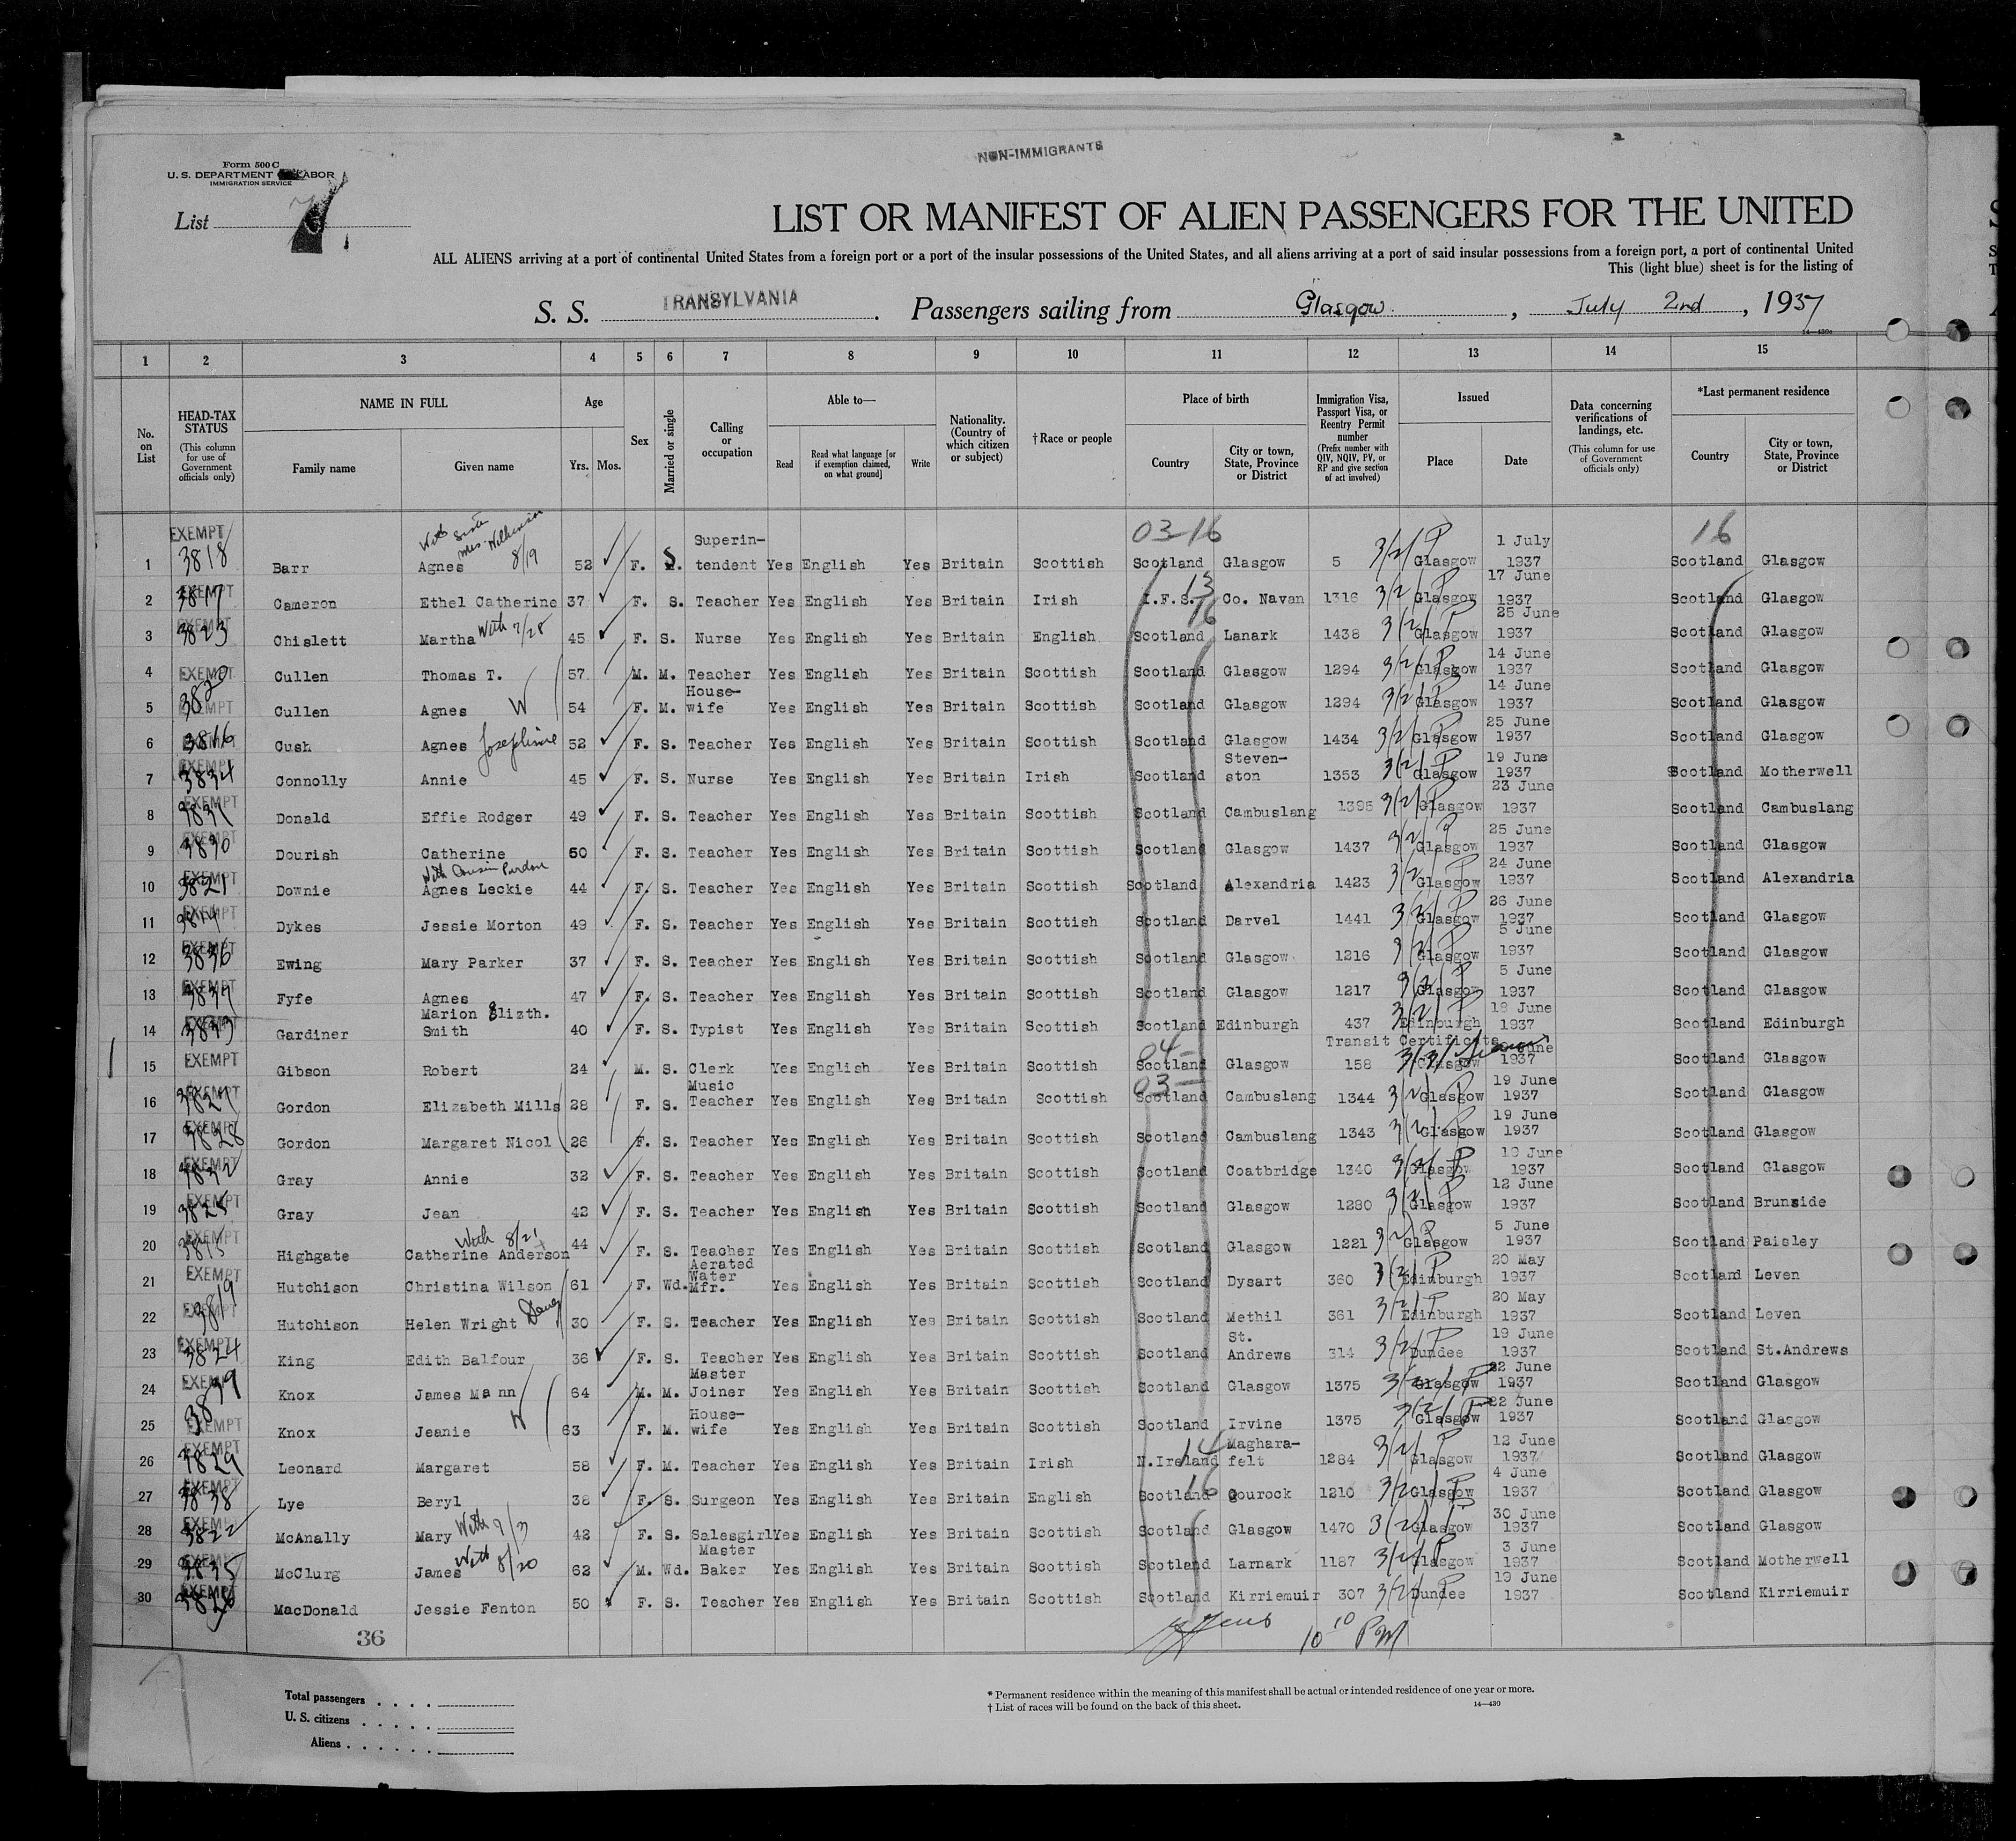 NON-IMMIGRANTS
Form 500 C
U. S. DEPARTMENT LABOR
IMMIGRATION SERVICE
List 7
LIST OR MANIFEST OF ALIEN PASSENGERS FOR THE UNITED
ALL ALIENS arriving at a port of continental United States from a foreign port or a port of the insular possessions of the United States, and all aliens arriving at a port of said insular possessions from a foreign port, a port of continental United
This (light blue) sheet is for the listing of
S. S. TRANSYLVANIA. Passengers sailing from Glasgow, July 2nd, 1937
1 2 3 4 5 6 7 8 9 10 11 12 13 14 15
No. on List
HEAD-TAX STATUS (This column for use of Government officials only)
NAME IN FULL Family name Given name
Age Yrs. Mos.
Sex
Married or single
Calling or occupation
Able to— Read Read what language [or if exemption claimed, on what ground] Write
Nationality. (Country of which citizen or subject)
†Race or people
Place of birth Country City or town, State, Province or District
Immigration Visa, Passport Visa, or Reentry Permit number (Prefix number with QIV, NQIV, PV, or RP and give section of act involved)
Issued Place Date
Data concerning verifications of landings, etc. (This column for use of Government officials only)
*Last permanent residence Country City or town, State, Province or District
03-16 16
1 EXEMPT 3818 Barr Agnes With Sister Mrs. Wilkinson 8/19 52 F. S. Superin-tendent Yes English Yes Britain Scottish Scotland Glasgow 5 3/2/P Glasgow 1 July 1937 Scotland Glasgow
2 EXEMPT 3817 Cameron Ethel Catherine 37 F. S. Teacher Yes English Yes Britain Irish I.F.S. 13 Co. Navan 1316 3/2/P Glasgow 17 June 1937 Scotland Glasgow
3 EXEMPT 3823 Chislett Martha With 7/28 45 F. S. Nurse Yes English Yes Britain English Scotland 16 Lanark 1438 3/2/P Glasgow 25 June 1937 Scotland Glasgow
4 EXEMPT 3820 Cullen Thomas T. 57 M. M. Teacher Yes English Yes Britain Scottish Scotland Glasgow 1294 3/2/P Glasgow 14 June 1937 Scotland Glasgow
5 EXEMPT Cullen Agnes W 54 F. M. House-wife Yes English Yes Britain Scottish Scotland Glasgow 1294 3/2/P Glasgow 14 June 1937 Scotland Glasgow
6 EXEMPT 3816 Cush Agnes Josephine 52 F. S. Teacher Yes English Yes Britain Scottish Scotland Glasgow 1434 3/2/P Glasgow 25 June 1937 Scotland Glasgow
7 EXEMPT 3834 Connolly Annie 45 F. S. Nurse Yes English Yes Britain Irish Scotland Steven-ston 1353 3/2/P Glasgow 19 June 1937 Scotland Motherwell
8 EXEMPT 3831 Donald Effie Rodger 49 F. S. Teacher Yes English Yes Britain Scottish Scotland Cambuslang 1395 3/2/P Glasgow 23 June 1937 Scotland Cambuslang
9 EXEMPT 3830 Dourish Catherine 50 F. S. Teacher Yes English Yes Britain Scottish Scotland Glasgow 1437 3/2/P Glasgow 25 June 1937 Scotland Glasgow
10 EXEMPT 3821 Downie Agnes Leckie With Cousin Purdon 44 F. S. Teacher Yes English Yes Britain Scottish Scotland Alexandria 1423 3/2/P Glasgow 24 June 1937 Scotland Alexandria
11 EXEMPT Dykes Jessie Morton 49 F. S. Teacher Yes English Yes Britain Scottish Scotland Darvel 1441 3/2/P Glasgow 26 June 1937 Scotland Glasgow
12 EXEMPT 3836 Ewing Mary Parker 37 F. S. Teacher Yes English Yes Britain Scottish Scotland Glasgow 1216 3/2/P Glasgow 5 June 1937 Scotland Glasgow
13 EXEMPT Fyfe Agnes 47 F. S. Teacher Yes English Yes Britain Scottish Scotland Glasgow 1217 3/2/P Glasgow 5 June 1937 Scotland Glasgow
14 EXEMPT Gardiner Marion Elizth. Smith 40 F. S. Typist Yes English Yes Britain Scottish Scotland Edinburgh 437 3/2/P Edinburgh 18 June 1937 Scotland Edinburgh
15 EXEMPT Gibson Robert 24 M. S. Clerk Yes English Yes Britain Scottish 04- Scotland Glasgow Transit Certificate 158 3/3/ Glasgow June 1937 Scotland Glasgow
16 EXEMPT Gordon Elizabeth Mills 28 F. S. Music Teacher Yes English Yes Britain Scottish 03- Scotland Cambuslang 1344 3/2/P Glasgow 19 June 1937 Scotland Glasgow
17 EXEMPT 3828 Gordon Margaret Nicol 26 F. S. Teacher Yes English Yes Britain Scottish Scotland Cambuslang 1343 3/2/P Glasgow 19 June 1937 Scotland Glasgow
18 EXEMPT 3832 Gray Annie 32 F. S. Teacher Yes English Yes Britain Scottish Scotland Coatbridge 1340 3/2/P Glasgow 19 June 1937 Scotland Glasgow
19 EXEMPT 3825 Gray Jean 42 F. S. Teacher Yes English Yes Britain Scottish Scotland Glasgow 1280 3/2/P Glasgow 12 June 1937 Scotland Brunside
20 EXEMPT 3815 Highgate Catherine Anderson With 8/21 44 F. S. Teacher Yes English Yes Britain Scottish Scotland Glasgow 1221 3/2/P Glasgow 5 June 1937 Scotland Paisley
21 EXEMPT 3819 Hutchison Christina Wilson 61 F. Wd. Aerated Water Mfr. Yes English Yes Britain Scottish Scotland Dysart 360 3/2/P Edinburgh 20 May 1937 Scotland Leven
22 EXEMPT Hutchison Helen Wright Daug 30 F. S. Teacher Yes English Yes Britain Scottish Scotland Methil 361 3/2/P Edinburgh 20 May 1937 Scotland Leven
23 EXEMPT 3824 King Edith Balfour 36 F. S. Teacher Yes English Yes Britain Scottish Scotland St. Andrews 314 3/2/P Dundee 19 June 1937 Scotland St.Andrews
24 EXEMPT 3839 Knox James Mann 64 M. M. Master Joiner Yes English Yes Britain Scottish Scotland Glasgow 1375 3/2/P Glasgow 22 June 1937 Scotland Glasgow
25 EXEMPT Knox Jeanie W 63 F. M. House-wife Yes English Yes Britain Scottish Scotland Irvine 1375 3/2/P Glasgow 22 June 1937 Scotland Glasgow
26 EXEMPT 3829 Leonard Margaret 58 F. M. Teacher Yes English Yes Britain Irish N.Ireland 14 Maghara-felt 1284 3/2/P Glasgow 12 June 1937 Scotland Glasgow
27 EXEMPT 3838 Lye Beryl 38 F. S. Surgeon Yes English Yes Britain English Scotland 16 Gourock 1210 3/2/P Glasgow 4 June 1937 Scotland Glasgow
28 EXEMPT 3822 McAnally Mary With 9/3 42 F. S. Salesgirl Yes English Yes Britain Scottish Scotland Glasgow 1470 3/2/P Glasgow 30 June 1937 Scotland Glasgow
29 EXEMPT 3835 McClurg James With 8/20 62 M. Wd. Master Baker Yes English Yes Britain Scottish Scotland Larnark 1187 3/2/P Glasgow 3 June 1937 Scotland Motherwell
30 EXEMPT 3826 MacDonald Jessie Fenton 50 F. S. Teacher Yes English Yes Britain Scottish Scotland Kirriemuir 307 3/2/P Dundee 19 June 1937 Scotland Kirriemuir
36
10 10 PM
Total passengers . . . .
U. S. citizens . . . . .
Aliens . . . . . .
* Permanent residence within the meaning of this manifest shall be actual or intended residence of one year or more.
† List of races will be found on the back of this sheet. 14—430